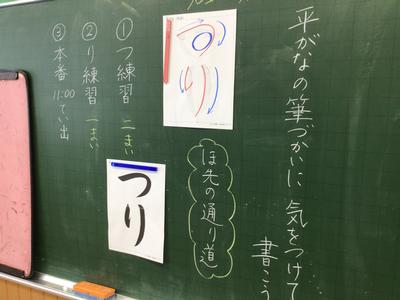 平がなの筆づかいに気をつけて
書こう
つり
ほ先の通り道
つり
①つ練習 二まい
②り練習 一まい
③本番 11:00てい出